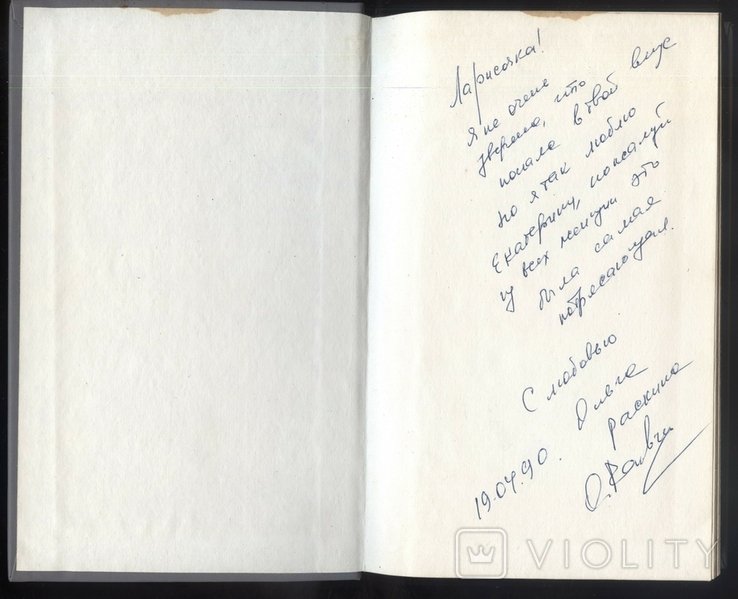 Ларисочка!
Я не очень
уверена, что
попала в твой вкус
но я так люблю
Екатерину, пожалуй
из всех женщин это
была самая
потрясающая.
С любовью
Ольга
Раскина
19.04.90.
VIOLITY